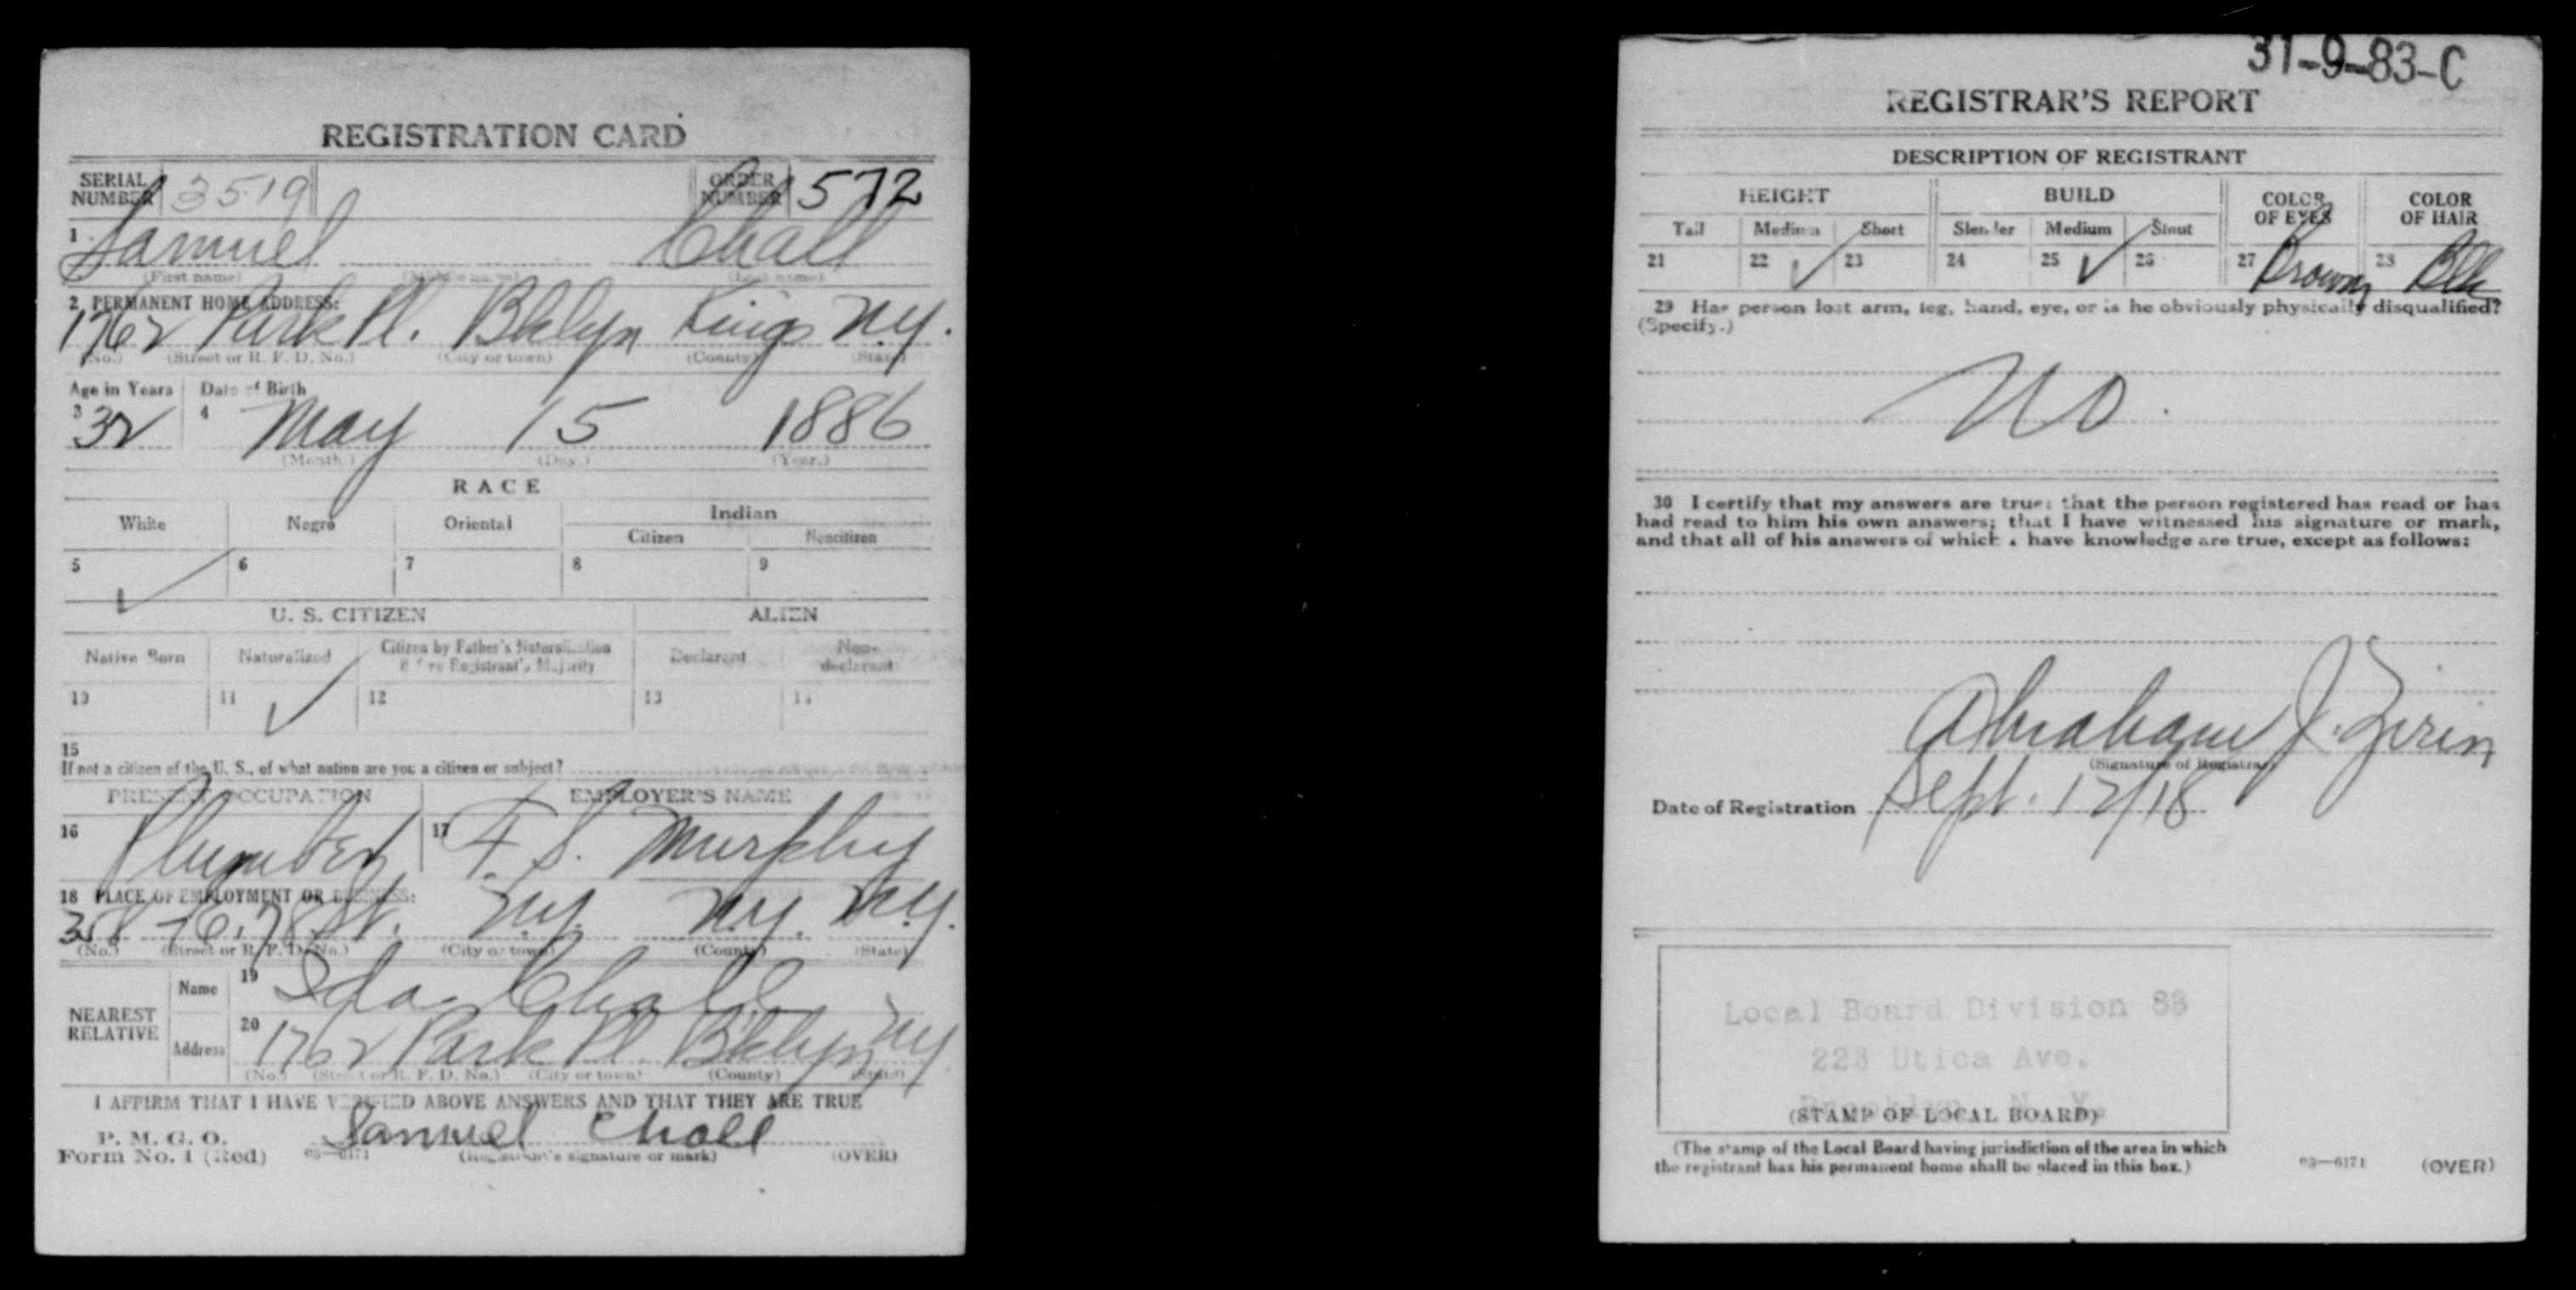 REGISTRATION CARD
SERIAL NUMBER 3519 ORDER NUMBER 572
1 Samuel Chall
(First name) (Middle name) (Last name)
2 PERMANENT HOME ADDRESS:
1762 Park Pl. Bklyn Kings N.Y.
(No.) (Street or R. F. D. No.) (City or town) (County) (State)
Age in Years Date of Birth
3 32 4 May 15 1886
(Month.) (Day.) (Year.)
RACE
White Negro Oriental Indian
Citizen Noncitizen
5 ✓ 6 7 8 9
U. S. CITIZEN ALIEN
Native Born Naturalized Citizen by Father's Naturalization Before Registrant's Majority Declarant Non-declarant
10 11 ✓ 12 13 14
15
If not a citizen of the U. S., of what nation are you a citizen or subject?
PRESENT OCCUPATION EMPLOYER'S NAME
16 Plumber 17 F. S. Murphy
18 PLACE OF EMPLOYMENT OR BUSINESS:
E. 78 St. N.Y. N.Y. N.Y.
(No.) (Street or R. F. D. No.) (City or town) (County) (State)
NEAREST RELATIVE
Name 19 Ida Chall
Address 20 1762 Park Pl. Bklyn N.Y
(No.) (Street or R. F. D. No.) (City or town) (County) (State)
I AFFIRM THAT I HAVE VERIFIED ABOVE ANSWERS AND THAT THEY ARE TRUE
P. M. G. O.
Form No. 1 (Red) 03—6171 Samuel Chall
(Registrant's signature or mark) (OVER)
31-9-83-C
REGISTRAR'S REPORT
DESCRIPTION OF REGISTRANT
HEIGHT BUILD COLOR OF EYES COLOR OF HAIR
Tall Medium Short Slender Medium Stout
21 22 ✓ 23 24 25 ✓ 26 27 Brown 28 Blk
29 Has person lost arm, leg, hand, eye, or is he obviously physically disqualified?
(Specify.)
No.
30 I certify that my answers are true; that the person registered has read or has
had read to him his own answers; that I have witnessed his signature or mark,
and that all of his answers of which I have knowledge are true, except as follows:
Abraham J. Zirin
(Signature of Registrar)
Date of Registration Sept. 12/18
Local Board Division 83
223 Utica Ave.
Brooklyn, N. Y.
(STAMP OF LOCAL BOARD)
(The stamp of the Local Board having jurisdiction of the area in which
the registrant has his permanent home shall be placed in this box.)
03—6171 (OVER)